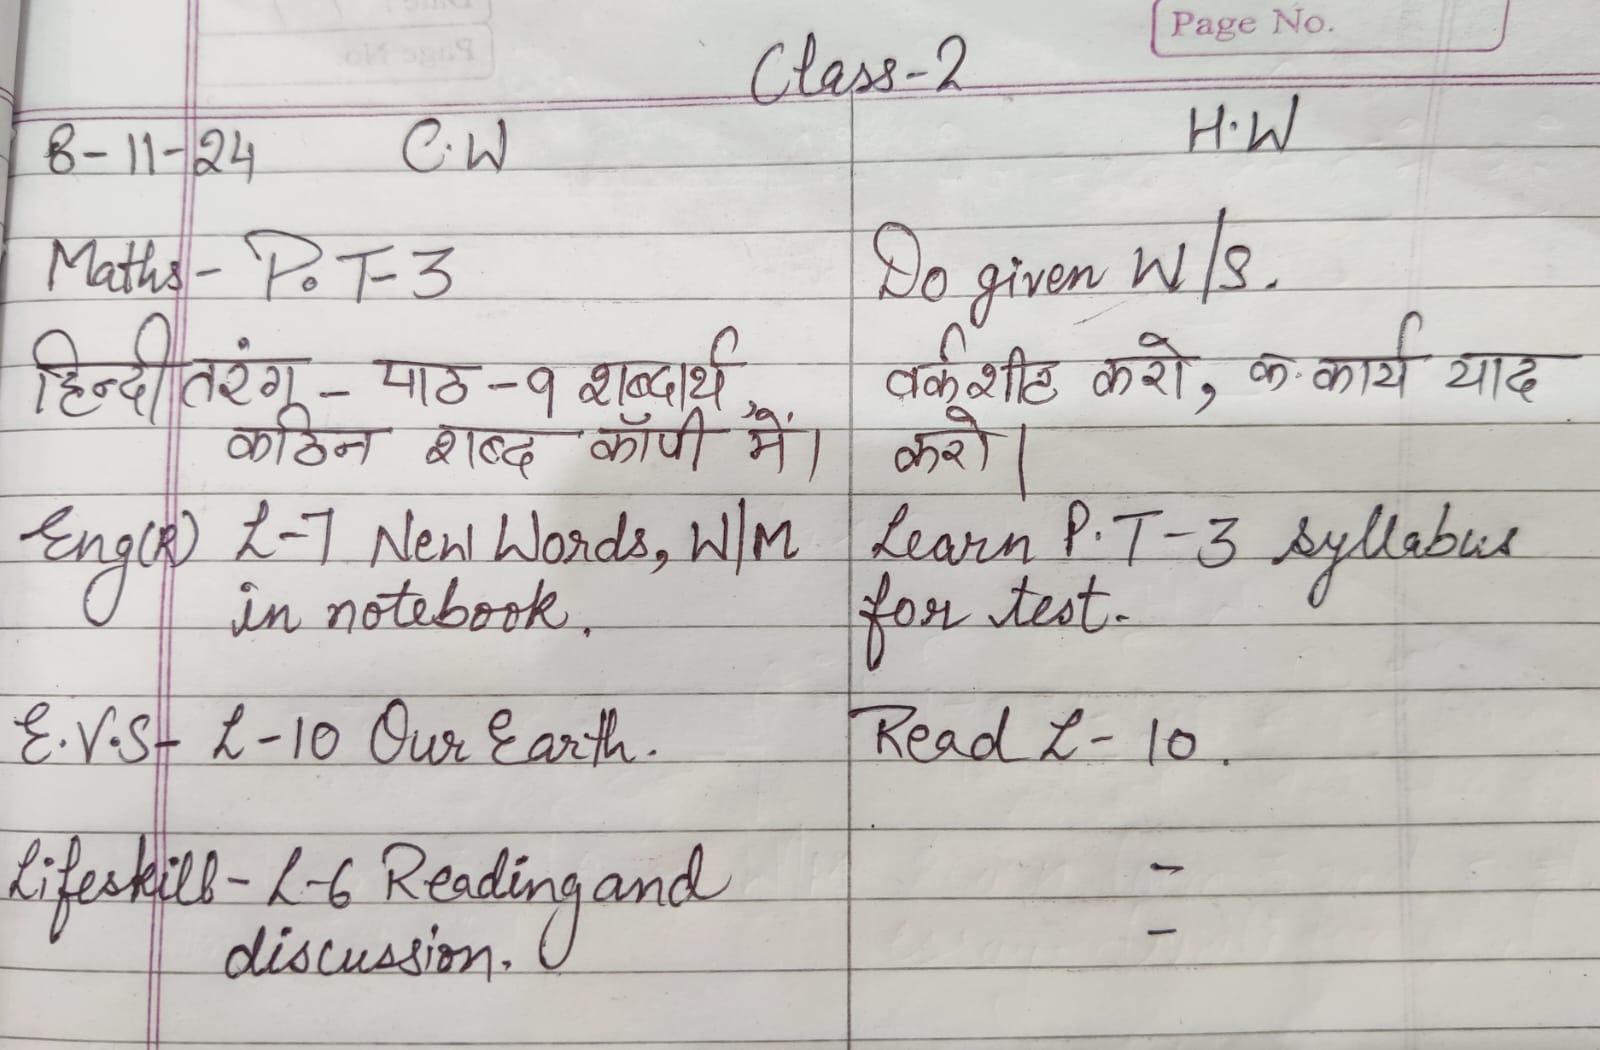 Page No.
Class-2
8-11-24 C.W H.W
Maths- P.T-3 Do given W/S.
हिन्दी तरंग - पाठ -९ शब्दार्थ, वर्कशीट करो, क. कार्य याद
कठिन शब्द कॉपी में। करो।
Eng(R) L-7 New Words, W/M Learn P.T-3 syllabus
in notebook. for test.
E.V.S- L-10 Our Earth. Read L-10.
Lifeskill- L-6 Reading and -
discussion. -